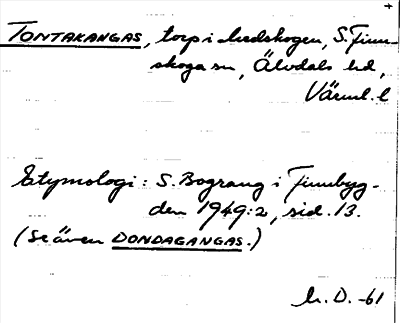 TONTAKANGAS, torp i Medskogen, S. Finn-
skoga sn, Älvdals hd,
Värml. l
Etymologi: S. Bograng i Finnbyg-
den 1949:2, sid. 13.
(Se även DONDAGANGAS.)
M. D. -61